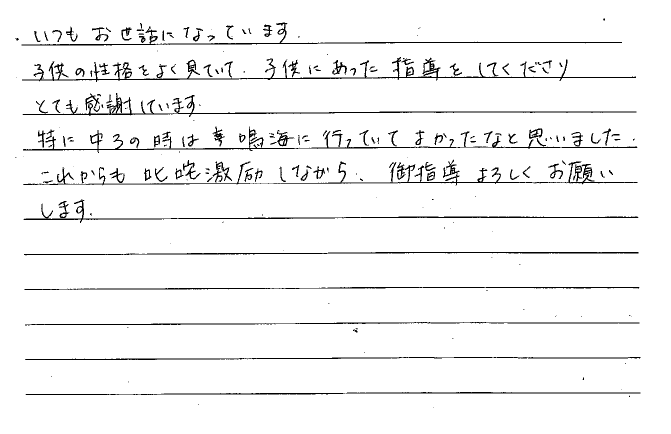 ・いつも お世話になっています.
子供の性格をよく見ていて. 子供にあった 指導をしてくださり
とても感謝しています.
特に中3の時は 鳴海に行っていてよかったなと思いました.
これからも 叱咤激励しながら、御指導よろしくお願い
します.